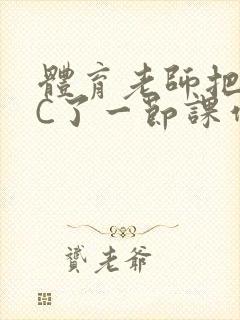 體育老師把
C了一節課作
贊老爺